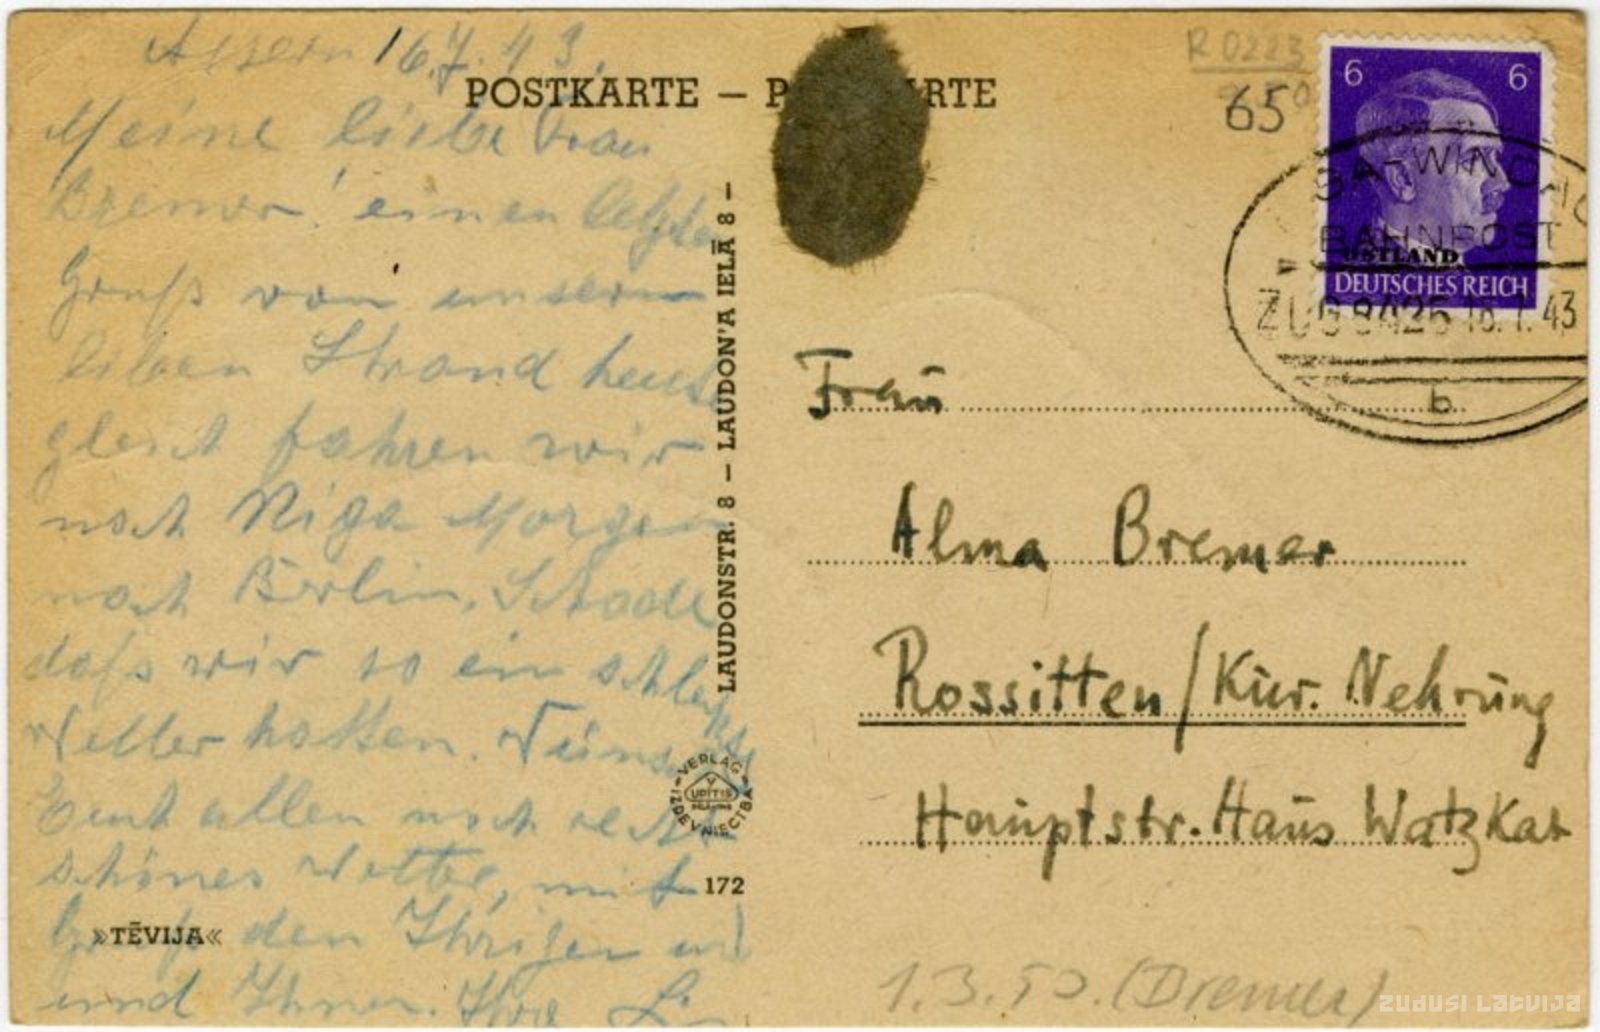 Assern 16.7.43.
POSTKARTE — P KARTE
R 0223
65
6 6
Meine liebe Frau
Bremer! einen letzten
Gruß von unserm
lieben Strand heute
gleich fahren wir
nach Riga Morgen
nach Berlin, Schade
daß wir so ein schlechtes
Wetter hatten. Wünsche
Euch allen noch recht
schönes Wetter, mit
Gruß den Ihrigen und
und Ihnen. Ihre
»TĒVIJA«
LAUDONSTR. 8 – LAUDON'A IELĀ 8 –
VERLAG
UPITIS
IZDEVNIECTBA
172
OSTLAND
DEUTSCHES REICH
BAHNPOST
ZUG 9425 16.7.43
b
Frau
Alma Bremer
Rossitten/Kur. Nehrung
Hauptstr. Haus Watzkat
1.3.50. (Bremer)
ZUDUSI LATVIJA